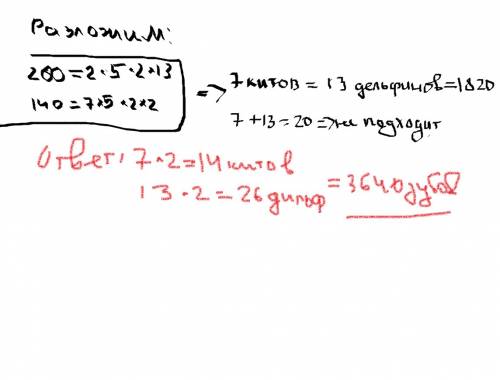 Разложим:
260=2·5·2·13
140=7·5·2·2
=> 7 китов = 13 дельфинов=1820
7+13=20 => не подходит
Ответ: 7·2=14 китов
13·2=26 дильф
=3640 зубов